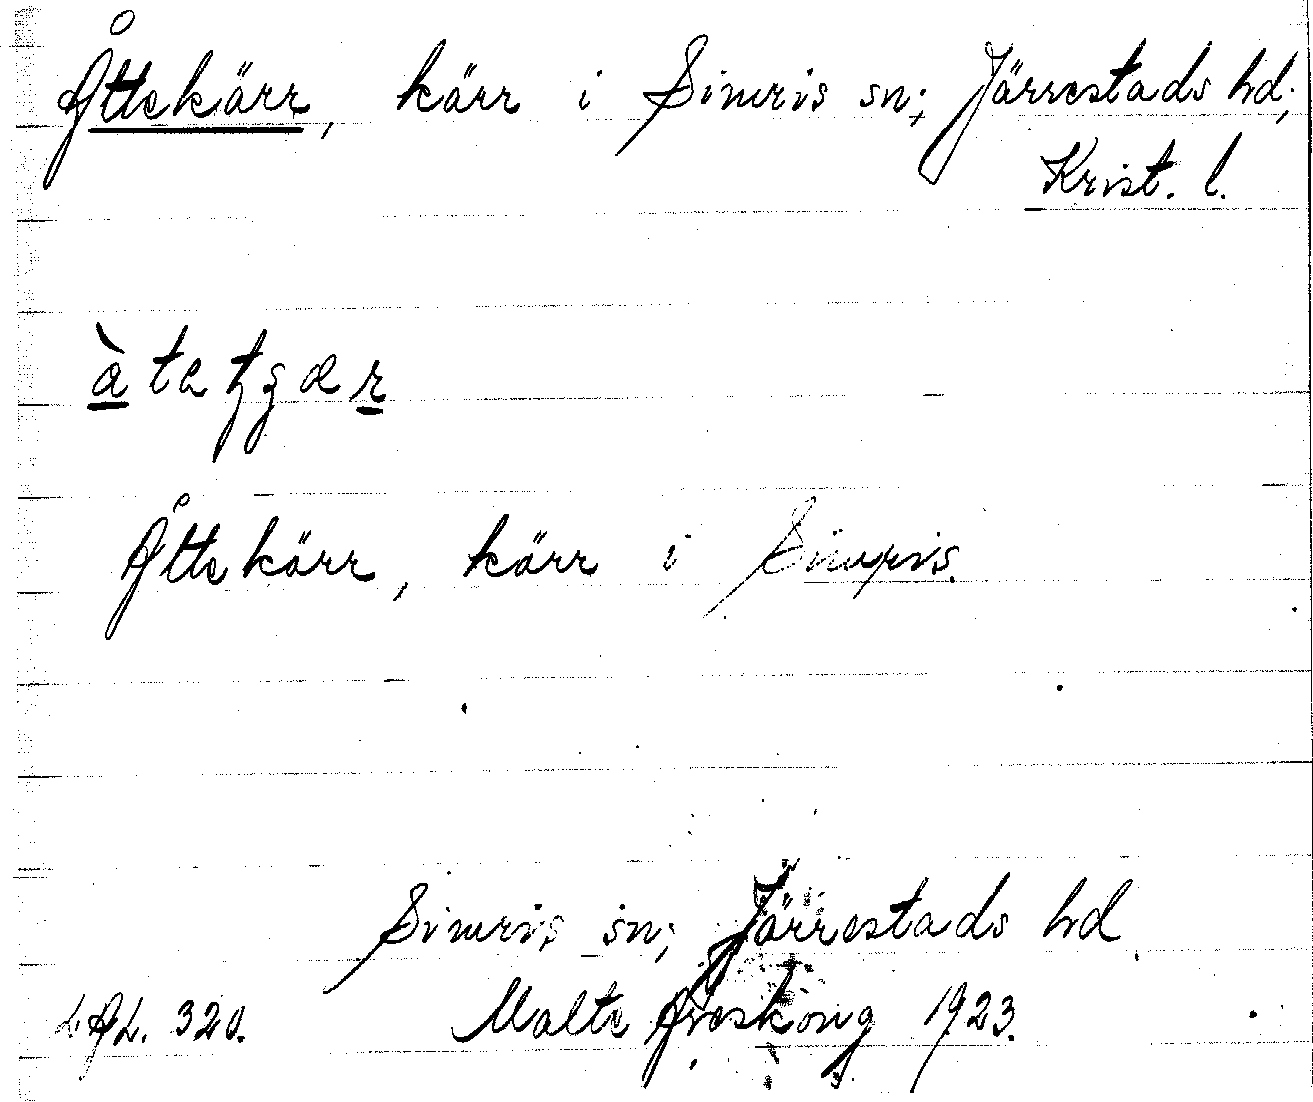 Åttekärr, kärr i Simris sn; Järrestads hd;
Krist. l.
Åttekärr, kärr i Simris.
Simris sn; Järrestads hd
Malte Areskoug 1923.